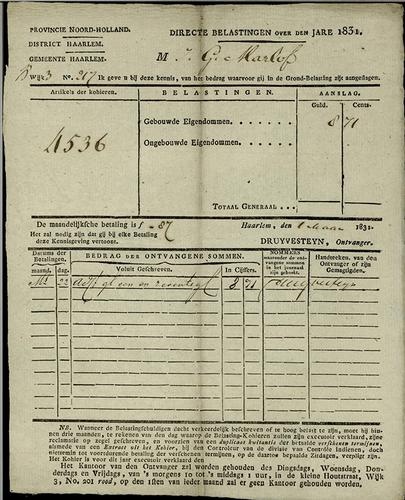 PROVINCIE NOORD-HOLLAND.
DISTRICT HAARLEM.
GEMEENTE HAARLEM.
DIRECTE BELASTINGEN OVER DEN JARE 1831.
M r. G. Marlof
B Wijk 3 No. 217 Ik geve u bij deze kennis, van het bedrag waarvoor gij in de Grond-Belasting zijt aangeslagen.
Artikels der kohieren.
BELASTINGEN.
AANSLAG.
Guld. Cents.
4536
Gebouwde Eigendommen. 8 71
Ongebouwde Eigendommen.
TOTAAL GENERAAL
De maandelijksche betaling is f - 87
Het zal nodig zijn dat gij bij elke Betaling
deze Kennisgeving vertoone.
Haarlem, den 1831.
DRUYVESTEYN, Ontvanger.
Datums der Betalingen.
maand. dag.
BEDRAG DER ONTVANGENE SOMMEN.
Voluit Geschreven.
In Cijffers.
NOMMERS waaronder de ontvangene sommen in het journaal zijn geboekt.
Handteeken. van den Ontvanger of zijn Gemagtigden.
22 Acht gl een en zeventig c 8 71
NB. Wanneer de Belastingschuldigen dacht verkeerdelijk beschreven of te hoog belast te zijn, moet hij binnen
drie maanden, te rekenen van den dag waarop de Belasting-Kohieren zullen zijn executoir verklaard, zijne
reclamatie op zegel geschreven, en voorzien van een duplicaat kwitantie der betaalde verschenen termijnen,
alsmede van een Extract uit het Kohier, bij den Controleur van de divisie van Contrôle Indienen, doch
niet tot voordurende betaling der verschenen termijnen, op de daartoe bepaalde Zitdagen, verpligt zijn.
Het Kohier is voor dit jaar executoir verklaard den
Het Kantoor van den Ontvanger zal worden gehouden des Dingsdags, Woensdag, Donderdags
en Vrijdags, van 's morgens 10 tot 's middags 1 uur, in de kleine Houtstraat, Wijk
3, No. 201 rood, op den 1sten van ieder maand zal er geen Kantoor gehouden worden.